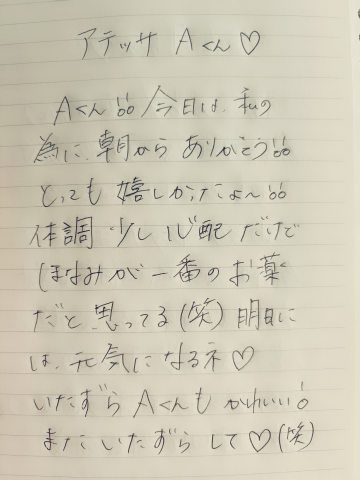 アテッサ Aくん♡
Aくん!! 今日は、私の
為に、朝から ありがとう!!
とっても 嬉しかったよ〜!!
体調 少し 心配 だけど
ほなみが 一番の お薬
だと 思ってる(笑) 明日に
は、元気に なるネ♡
いたずら Aくんも かわいい!
また いたずら して♡(笑)